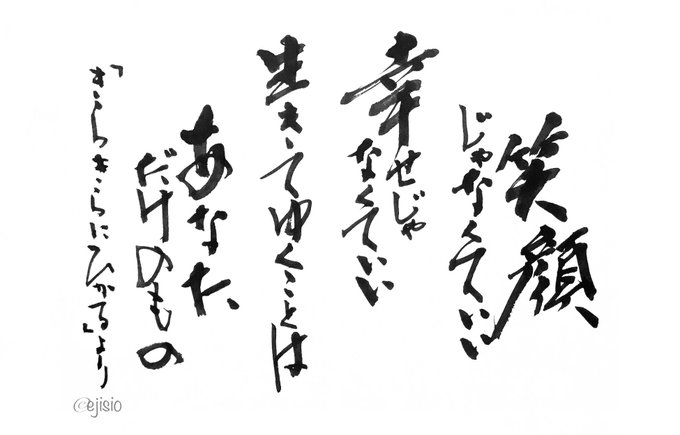 笑顔
じゃなくていい
幸せじゃ
なくていい
生きてゆくことは
あなた
だけのもの
「きらきらにひかる」より
@ejisio